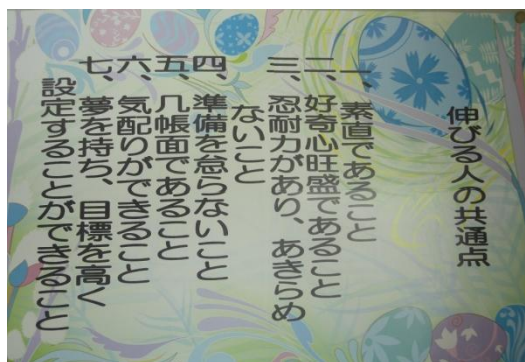 伸びる人の共通点
一、素直であること
二、好奇心旺盛であること
三、忍耐力があり、あきらめ
ないこと
四、準備を怠らないこと
五、几帳面であること
六、気配りができること
七、夢を持ち、目標を高く
設定することができること